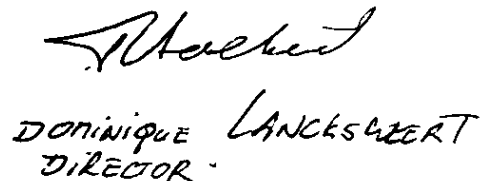 DOMINIQUE LANCKSWEERT
DIRECTOR.